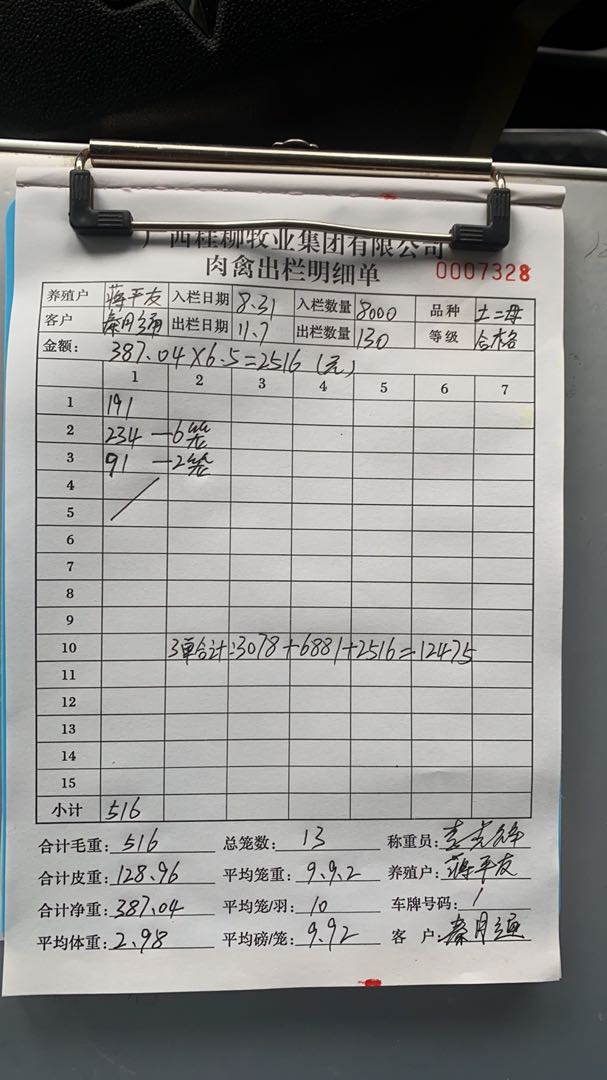 广西桂柳牧业集团有限公司
肉禽出栏明细单 0007328
养殖户 蒋平友 入栏日期 8.31 入栏数量 8000 品种 土二母
客户 秦月通 出栏日期 11.7 出栏数量 130 等级 合格
金额: 387.04×6.5=2516(元)
1 2 3 4 5 6 7
1 191
2 234 —6笼
3 91 —2笼
4
5
6
7
8
9
10 3单合计:3078+6881+2516=12475
11
12
13
14
15
小计 516
合计毛重: 516 总笼数: 13 称重员:
合计皮重: 128.96 平均笼重: 9.9.2 养殖户: 蒋平友
合计净重: 387.04 平均笼/羽: 10 车牌号码: 1
平均体重: 2.98 平均磅/笼: 9.92 客 户: 秦月通